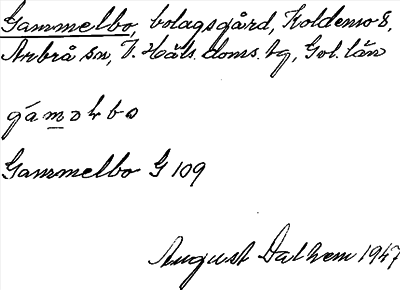 Gammelbo, bolagsgård, Koldemo 8,
Arbrå sn, V. Häls. doms. tg, Gvl. län
Gammelbo G 109
August Dalhem 1947